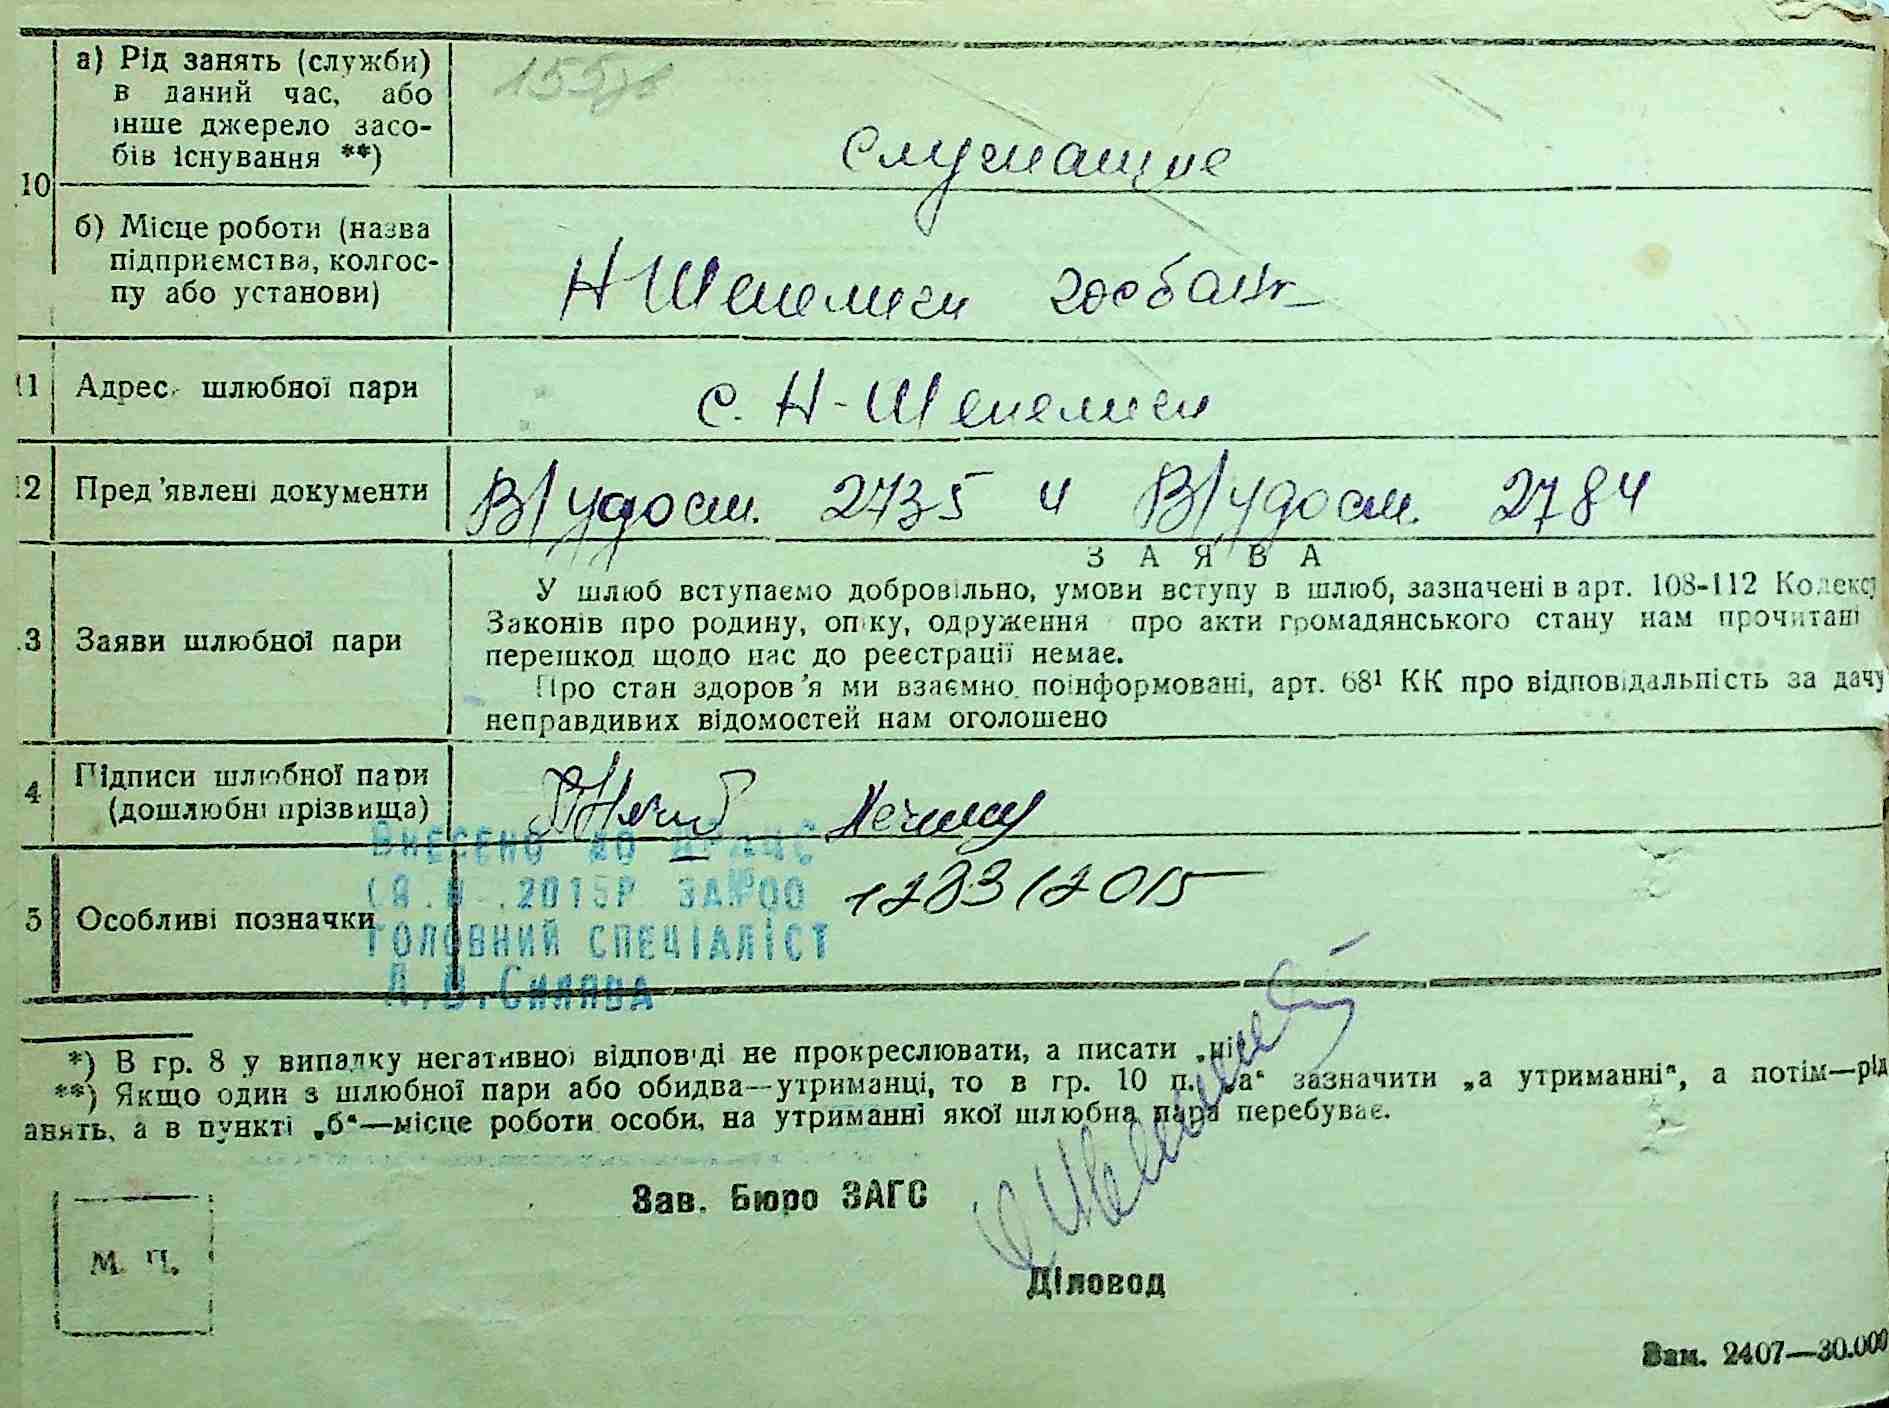 10
а) Рід занять (служби)
в даний час, або
інше джерело засо-
бів існування **)
служащие
б) Місце роботи (назва
підприємства, колгос-
пу або установи)
Н Шепеличи госбанк
11 Адрес шлюбної пари
с. Н-Шепеличи
12 Пред'явлені документи
В/удост. 2735 и В/удост. 2784
ЗАЯВА
3 Заяви шлюбної пари
У шлюб вступаємо добровільно, умови вступу в шлюб, зазначені в арт. 108-112 Кодексу
Законів про родину, опіку, одруження про акти громадянського стану нам прочитані
перешкод щодо нас до реєстрації немає.
Про стан здоров'я ми взаємно поінформовані, арт. 68¹ КК про відповідальність за дачу
неправдивих відомостей нам оголошено
4 Підписи шлюбної пари
(дошлюбні прізвища)
Внесено до ДРАЦС
.2015Р ЗА№00
1283/2015
5 Особливі позначки
ГОЛОВНИЙ СПЕЦІАЛІСТ
*) В гр. 8 у випадку негативної відповіді не прокреслювати, а писати „ні
**) Якщо один з шлюбної пари або обидва—утриманці, то в гр. 10 п. „а“ зазначити „а утриманні“, а потім—рід
анять, а в пункті „б“—місце роботи особи, на утриманні якої шлюбна пара перебуває.
Зав. Бюро ЗАГС
М. П.
Діловод
Зам. 2407—30.000